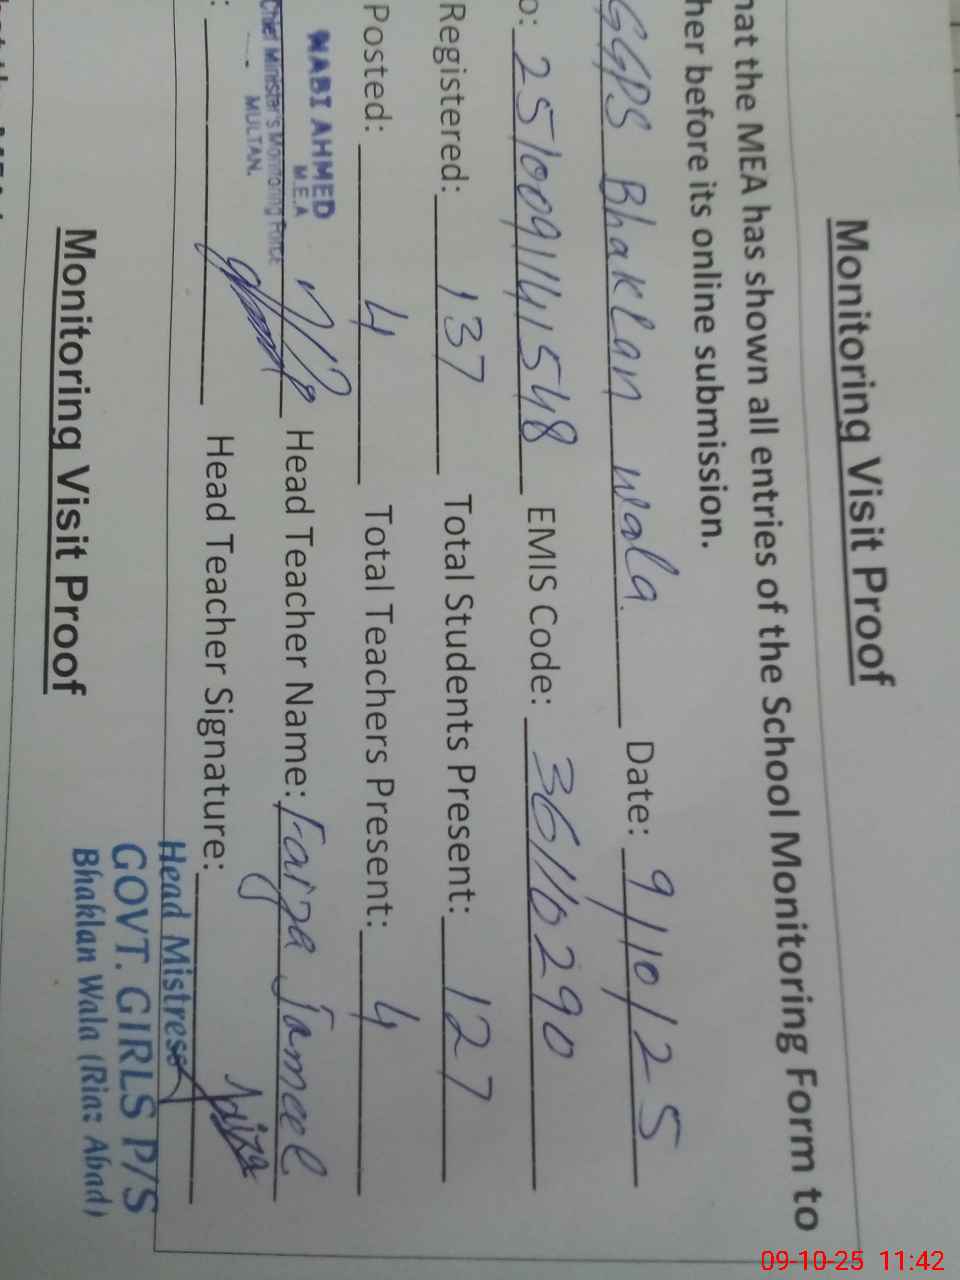 Monitoring Visit Proof
hat the MEA has shown all entries of the School Monitoring Form to
her before its online submission.
GGPS Bhaklan wala. Date: 9/10/25
o: 2510091141548 EMIS Code: 36110290
Registered: 137 Total Students Present: 127
Posted: 4 Total Teachers Present: 4
NABI AHMED
M.E.A
Chief Minister's Monitoring Force
MULTAN.
Head Teacher Name: Faiza Jameel
: Head Teacher Signature:
Head Mistress
GOVT. GIRLS P/S
Bhaklan Wala (Riaz Abad)
Monitoring Visit Proof
09-10-25 11:42